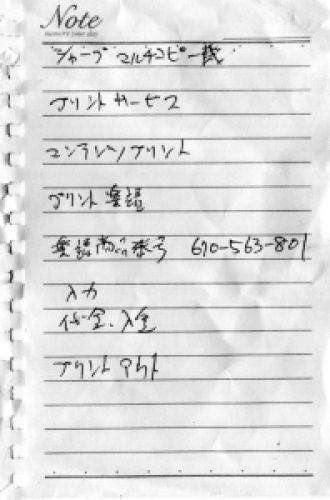 Note
memory your day
シャープ マルチコピー機
プリントサービス
コンテンツプリント
プリント楽譜
楽譜商品番号 610-563-801
入力
代金、入金
プリントアウト